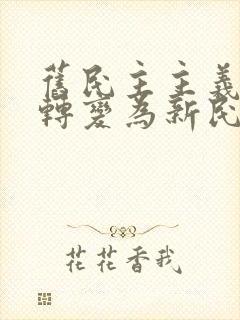 舊民主主義
轉變為新民
花花香我